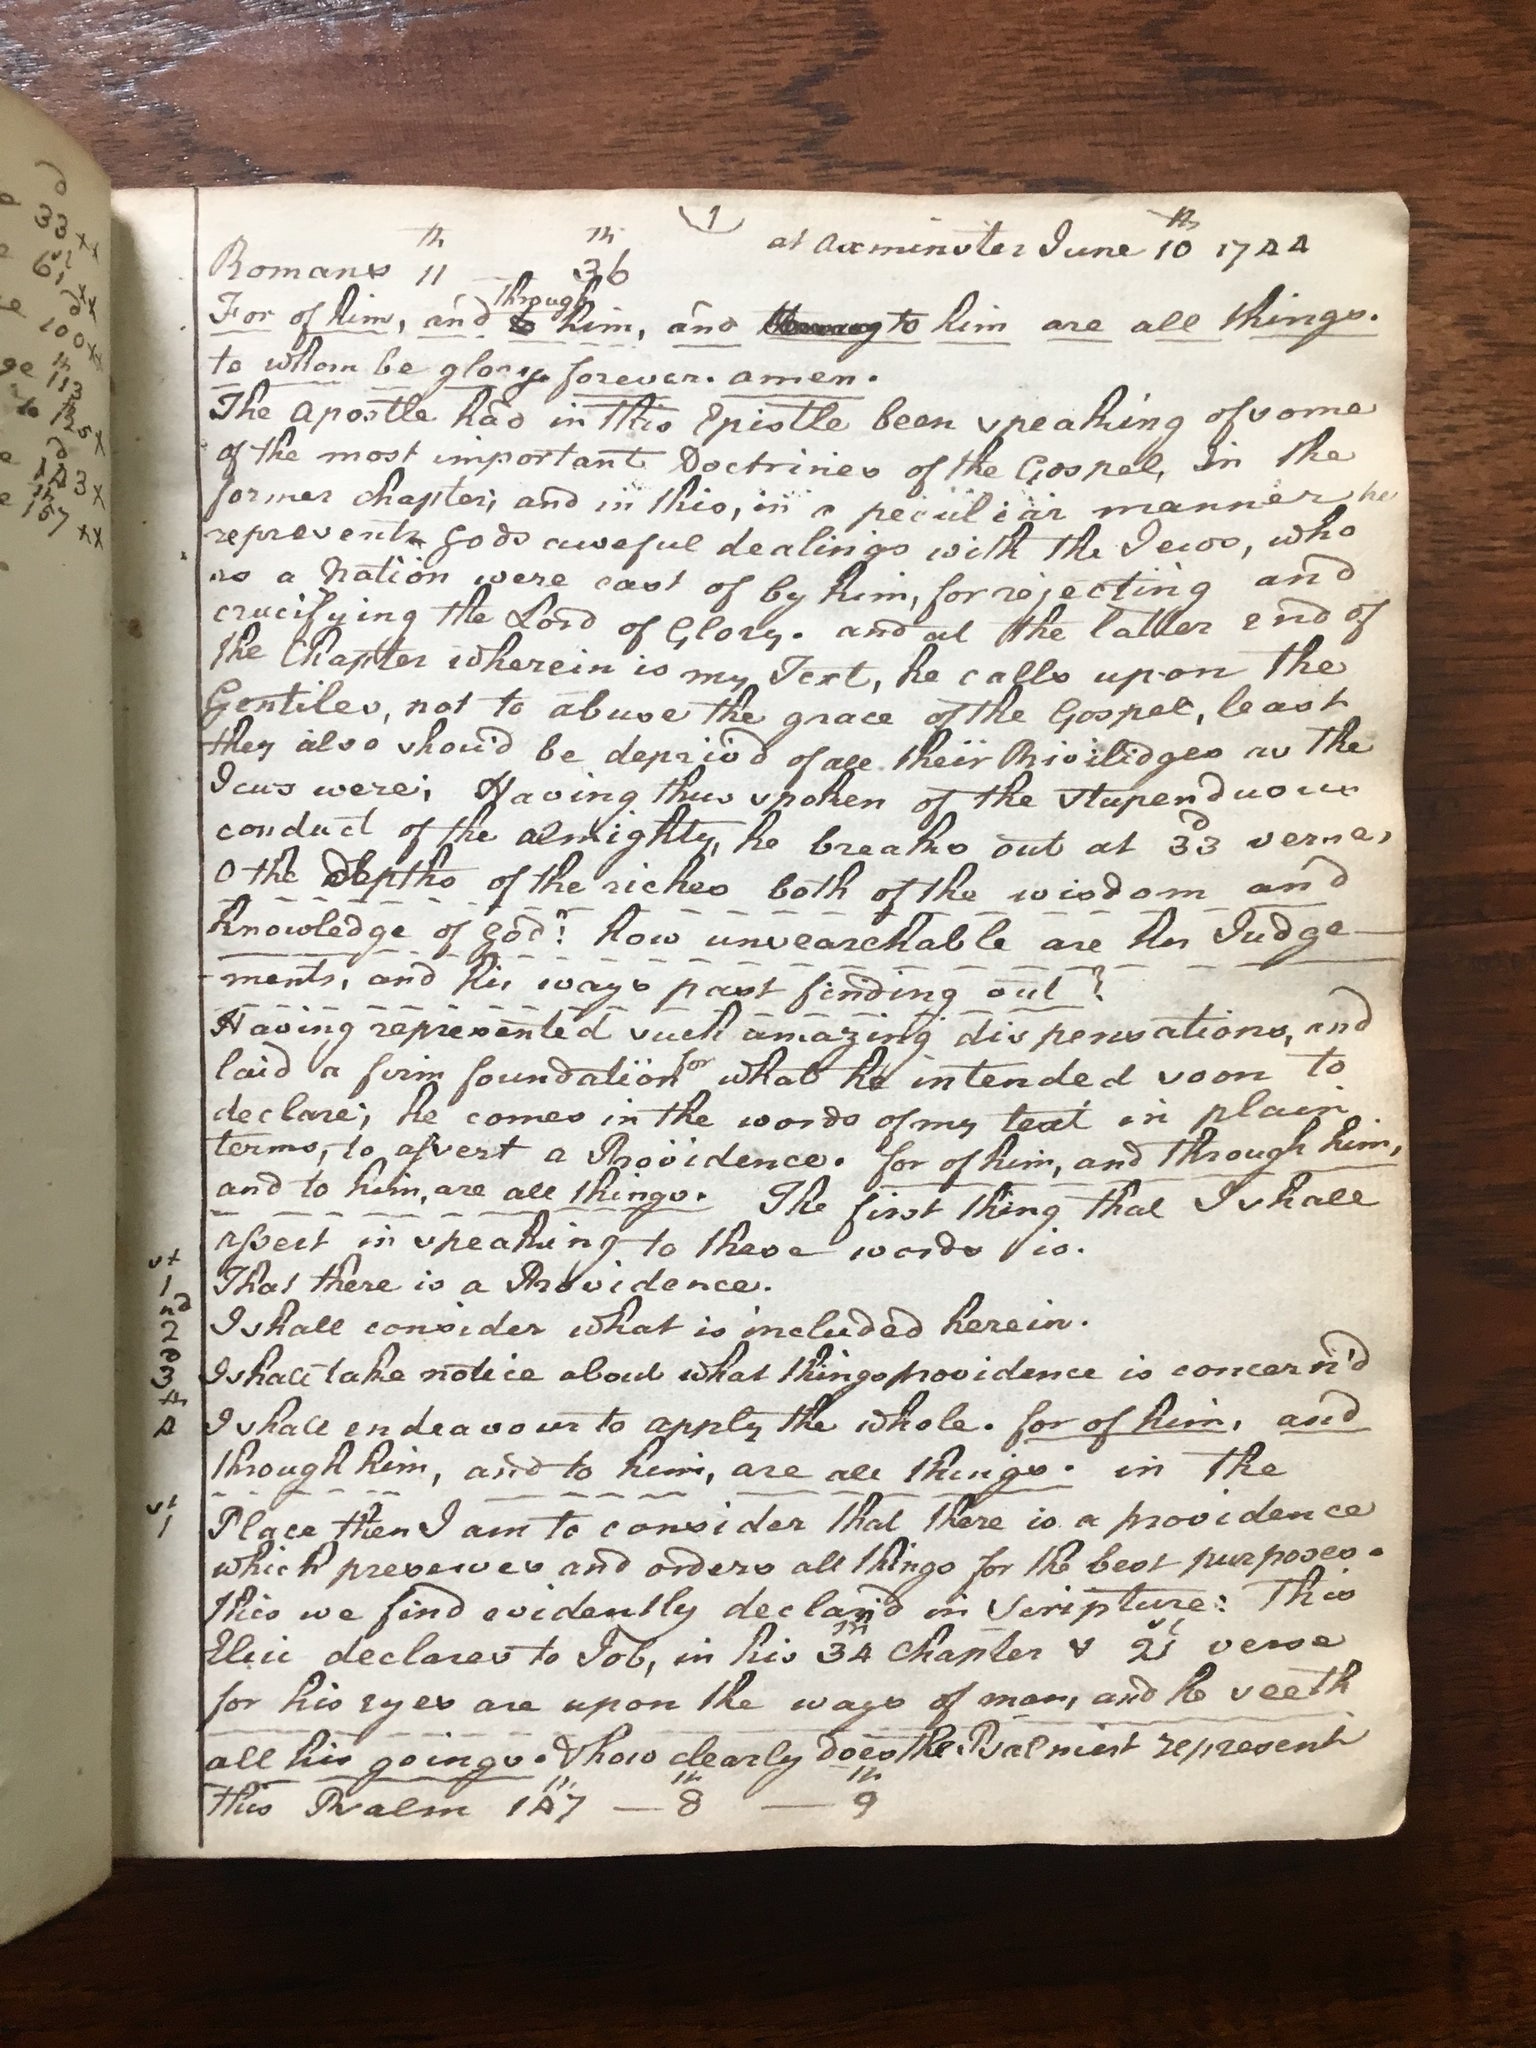 1
at Axminster June 10th 1744
Romans 11th — 36th
For of him, and through him, and to him are all things.
to whom be glory forever. amen.
The Apostle had in this Epistle been speaking of some
of the most important Doctrines of the Gospel, in the
former chapter; and in this, in a peculiar manner he
represents Gods aweful dealings with the Jews, who
as a Nation were cast of by him, for rejecting and
crucifying the Lord of Glory. and at the latter end of
the Chapter wherein is my Text, he calls upon the
Gentiles, not to abuse the grace of the Gospel, least
they also shou'd be depriv'd of all their Privilidges as the
Jews were; Having thus spoken of the stupenduous
conduct of the almighty, he breaks out at 33d verse,
O the depths of the riches both of the wisdom and
knowledge of God! how unsearchable are his Judge-
-ments, and his ways past finding out!
Having represented such amazing dispensations, and
laid a firm foundation for what he intended soon to
declare; he comes in the words of my text in plain
terms, to assert a Providence. for of him, and through him,
and to him, are all things. The first thing that I shall
assert in speaking to these words is.
1st That there is a Providence.
2nd I shall consider what is included herein.
3d I shall take notice about what things providence is concern'd
4th I shall endeavour to apply the whole. for of him, and
through him, and to him, are all things. in the
1st Place then I am to consider that there is a providence
which preserves and orders all things for the best purposes.
this we find evidently declar'd in Scripture: This
Eliu declares to Job, in his 34th Chapter & 21st verse
for his eyes are upon the ways of man, and he seeth
all his goings. & how clearly does the Psalmist represent
this Psalm 147th — 8th — 9th
33 xx
61st
xx
100d xx
ge 113th
to 125th x
143d x
157th xx